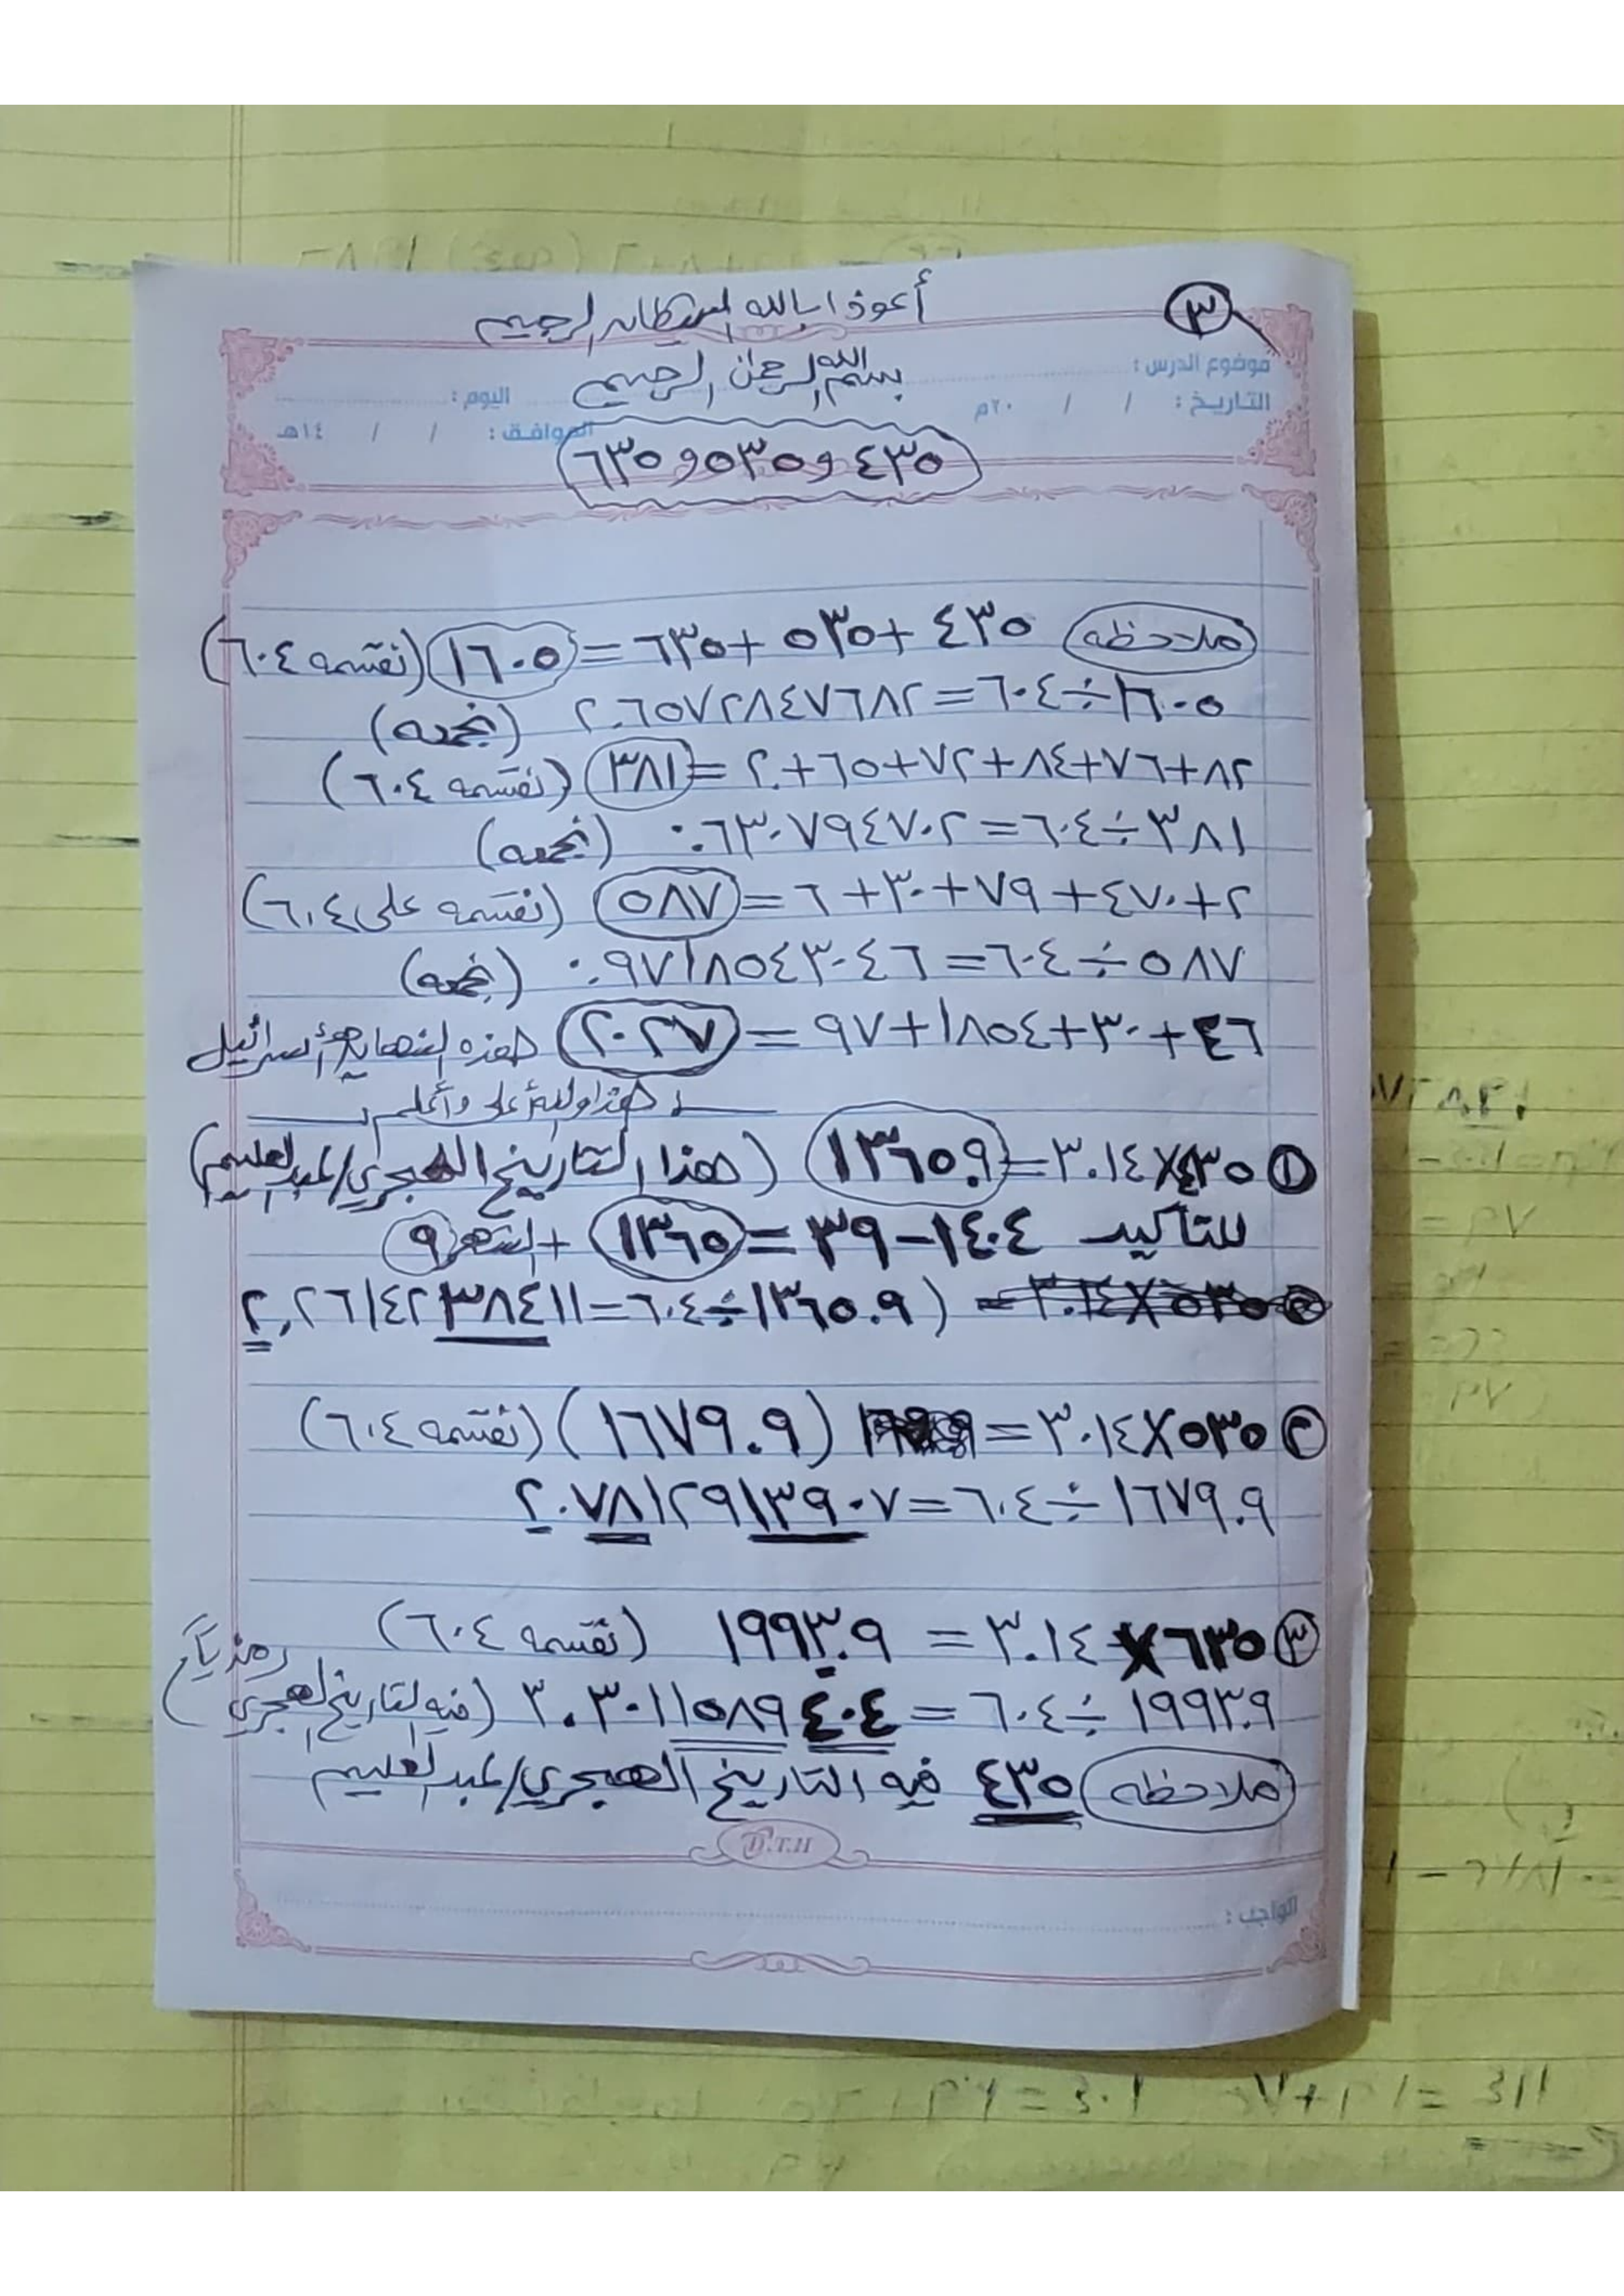 ٣
أعوذ بالله الشيطان الرجيم
بسم الله الرحمن الرحيم
موضوع الدرس :
التاريخ : / / ٢٠م
اليوم :
الموافق : / / ١٤هـ
٤٣٥ و ٥٣٥ و ٦٣٥
ملاحظه ٤٣٥ + ٥٣٥ + ٦٣٥ = ١٦٠٥ (نقسمه ٦٠٤)
١٦٠٥ ÷ ٦٠٤ = ٢.٦٥٧٢٨٤٧٦٨٢ (نجمعه)
٨٢+٦٧+٨٤+٧٢+٦٥+٢. = ٣٨١ (نقسمه ٦٠٤)
٣٨١ ÷ ٦٠٤ = ٠.٦٣٠٧٩٤٧٠٢ (نجمعه)
٢+٤٧٠+٧٩+٣٠+٦ = ٥٨٧ (نقسمه على ٦٠٤)
٥٨٧ ÷ ٦٠٤ = ٠.٩٧١٨٥٤٣٠٤٦ (نجمعه)
٤٦+٣٠+١٨٥٤+٩٧ = ٢٠٢٧ هذه النهاية أسرائيل
هذا والله أعلى وأعلم
① ٤٣٥ × ٣.١٤ = ١٣٦٥.٩ (هذا التاريخ الهجري/عبدالعليم)
للتأكيد ١٤٠٤ - ٣٩ = ١٣٦٥ + الشهر ٩
١٣٦٥.٩ ÷ ٦٠٤ = ٢.٢٦١٤٢٣٨٤١١ )
② ٥٣٥ × ٣.١٤ = (١٦٧٩.٩) (نقسمه ٦٠٤)
١٦٧٩.٩ ÷ ٦٠٤ = ٢.٧٨١٢٩١٣٩٠٧
③ ٦٣٥ × ٣.١٤ = ١٩٩٣.٩ (نقسمه ٦٠٤)
١٩٩٣.٩ ÷ ٦٠٤ = ٣.٣٠١١٥٨٩٤٠٤ (فيه التاريخ الهجري
ملاحظه ٤٣٥ فيه التاريخ الهجري/عبدالعليم
D.T.H
الواجب :